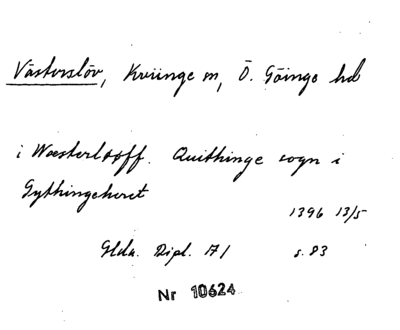 Västerslöv, Kviinge sn, Ö. Göinge hd
i Wæsterløff. Quithinge sogn i
Gythingeheret
1396 13/5
Glda. Dipl. 17/ s. 83
Nr 10624